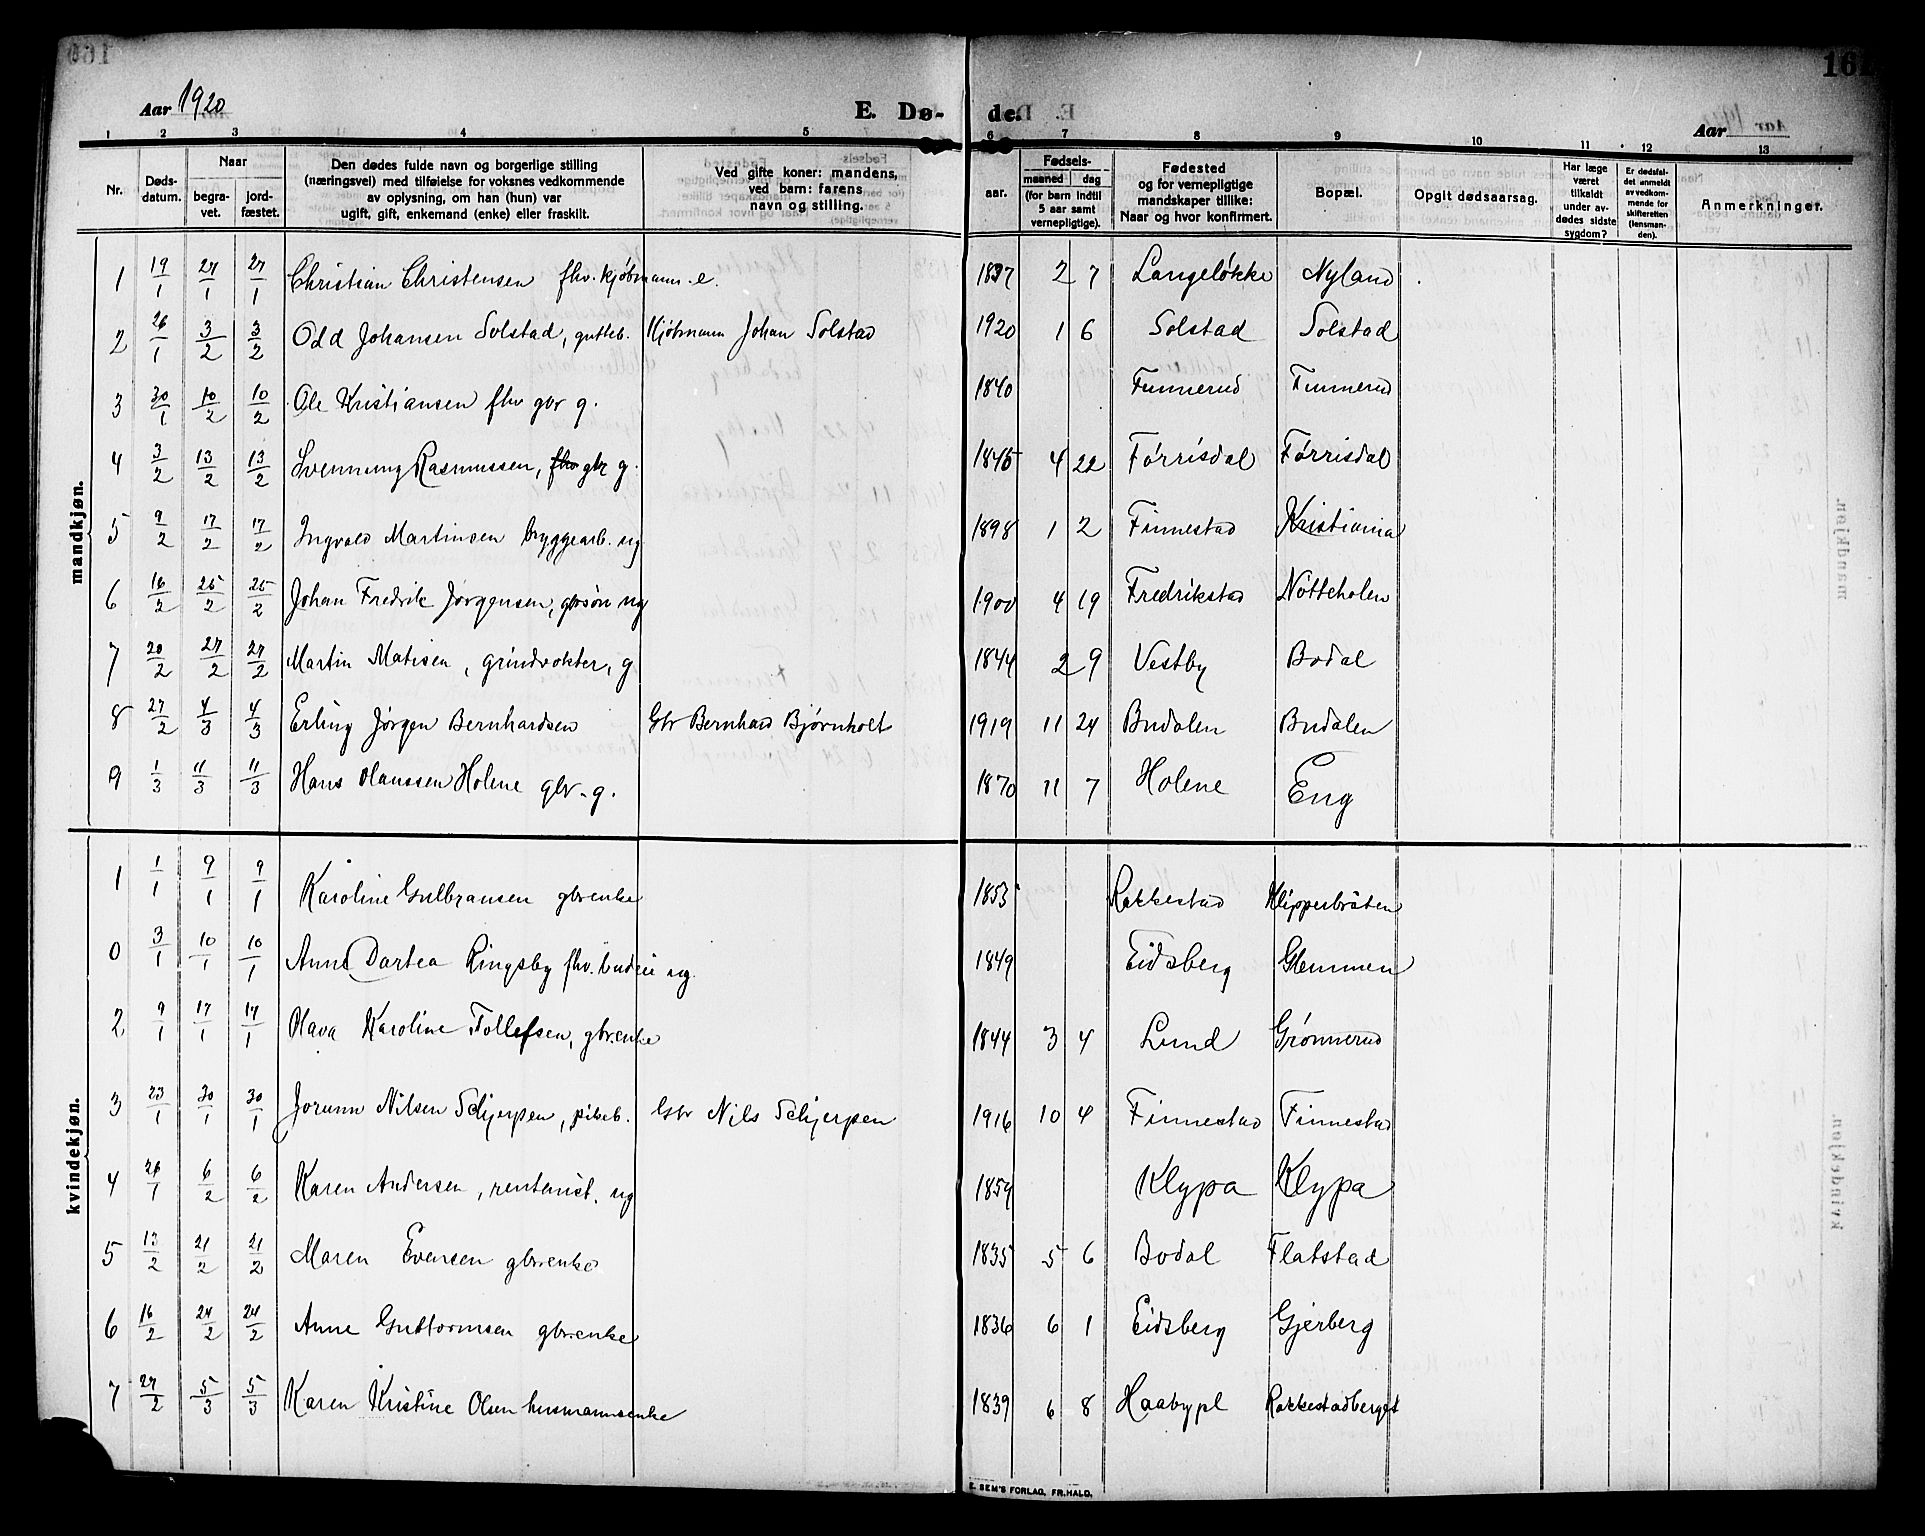 Aar 1920 E. Dø- de. Aar 161
1 2 3 4 5 6 7 8 9 10 11 12 13
Nr. Døds-datum. Naar begra-vet. jord-fæstet. Den dødes fulde navn og borgerlige stilling (næringsvei) med tilføielse for voksnes vedkommende av oplysning, om han (hun) var ugift, gift, enkemand (enke) eller fraskilt. Ved gifte koner: mandens, ved barn: farens navn og stilling. Fødsels- aar. maaned dag (for barn indtil 5 aar samt vernepligtige). Fødested og for vernepligtige mandskaper tillike: Naar og hvor konfirmert. Bopæl. Opgit dødsaarsag. Har læge været tilkaldt under av-dødes sidste sygdom? Er dødsfal-det anmeldt av vedkom-mende for skifteretten (lensman-den). Anmerkninger.
mandkjøn.
1 19/1 27/1 27/1 Christian Christensen fhv. kjøbmann. e. 1837 2 7 Langeløkke Nyland
2 26/1 3/2 3/2 Odd Johansen Solstad, gutteb. Kjøbmann Johan Solstad 1920 1 6 Solstad Solstad
3 30/1 10/2 10/2 Ole Kristiansen fhv gbr g. 1840 Funnerud Funnerud
4 3/2 13/2 13/2 Svennung Rasmussen, fhv gbr g. 1845 4 22 Førrisdal Førrisdal
5 9/2 17/2 17/2 Ingvald Martinsen bryggearb. ug 1898 1 2 Finnestad Kristiania
6 16/2 25/2 25/2 Johan Fredrik Jørgensen, gbrsøn ug 1900 4 19 Fredrikstad Nötteholen
7 20/2 27/2 27/2 Martin Matisen, grindvokter, g 1844 2 9 Vestby Bodal
8 27/2 4/3 4/3 Erling Jørgen Bernhardsen Gbr Bernhard Bjørnholt 1919 11 24 Budalen Budalen
9 1/3 11/3 11/3 Hans Olaussen Holene gbr. g. 1870 11 7 Holene Eng
kvindekjøn.
1 1/1 9/1 9/1 Karoline Gulbransen gbrenke 1853 Rakkestad Klipperbråten
0 3/1 10/1 10/1 Anne Dortea Ringsby fhv. budeie ug. 1849 Eidsberg Glemmen
2 9/1 17/1 17/1 Olava Karoline Tollefsen, gbrenke 1844 3 4 Lund Grønnerud
3 23/1 30/1 30/1 Jorunn Nilsen Schjerpen, pikeb. Gbr Nils Schjerpen 1916 10 4 Finnestad Finnestad
4 26/1 6/2 6/2 Karen Andersen, rentenist. ug 1859 Klypa Klypa
5 13/2 21/2 21/2 Maren Evensen gbrenke 1835 5 6 Bodal Flatstad
6 16/2 24/2 24/2 Anne Guttormsen gbrenke 1836 6 1 Eidsberg Gjerberg
7 27/2 5/3 5/3 Karen Kristine Olsen husmannsenke 1839 6 8 Haabypl Rakkestadberget
E. SEM'S FORLAG, FR.HALD.